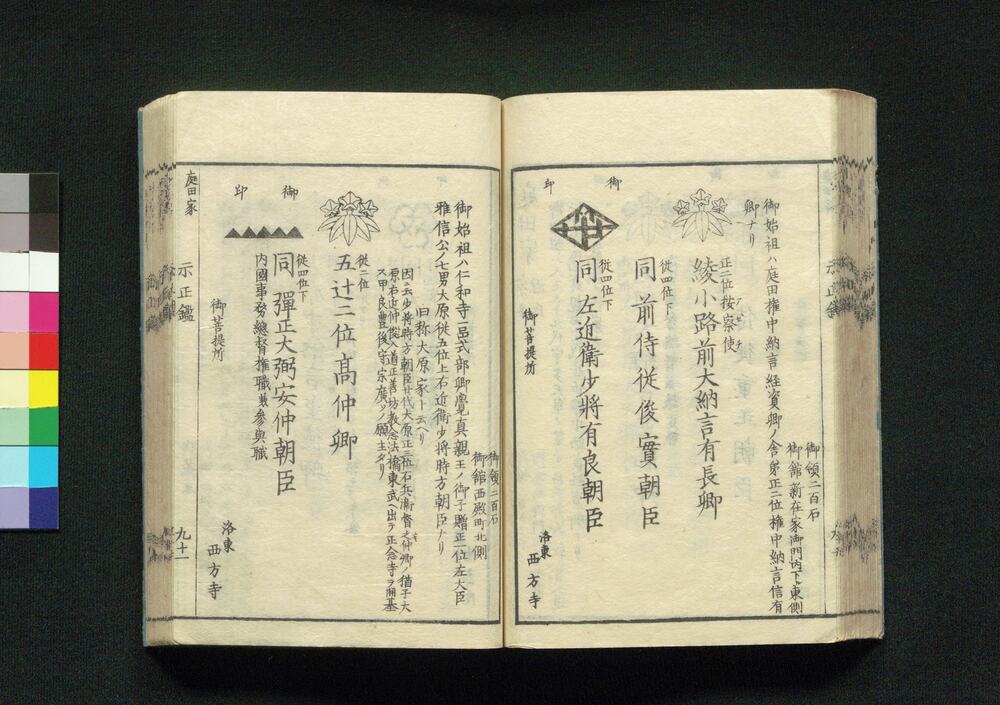 御領二百石
御館新在家御門内下ル東側
御始祖ハ庭田権中納言経資卿ノ舎弟正二位権中納言信有
卿ナリ
正二位按察使
綾小路前大納言有長卿
従四位下
同 前侍従俊實朝臣
従四位下
同 左近衛少將有良朝臣
御印
御菩提所
洛東
西方寺
御領二百石
御館西殿町北側
御始祖ハ仁和寺一品式部卿覺真親王ノ御子贈正一位左大臣
雅信公ノ七男大原従五位上右近衛少将時方朝臣ナリ
旧称大原家ト云ヘリ
因ニ云少将時方朝臣廿代大原正三位右兵衛督之仲卿ノ猶子大
原右近仲俊入道正善坊教念法橋東武ヘ出テ正念寺ヲ開基
ス甲良豊後守宗廣ソノ願主タリ
従二位
五辻二位高仲卿
従四位下
同 彈正大弼安仲朝臣
内國事务總督権職兼参與職
御印
御菩提所
洛東
西方寺
庭田家
示正鑑
九十一